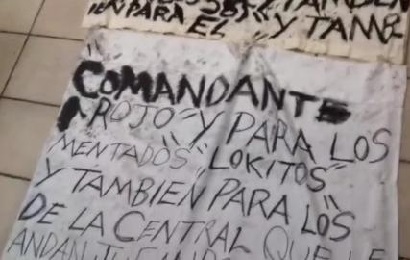 TAMBIEN
IEN PARA EL "Y TAMB
"COMANDANTE
ROJO" Y PARA LOS
MENTADOS "LOKITOS"
Y TAMBIEN PARA LOS
DE LA CENTRAL QUE LE
ANDAN JUGANDO